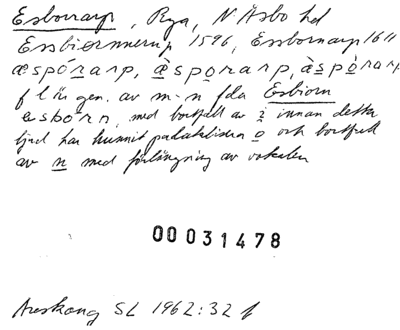 Esborrarp, Rya, N Åsbo hd
Essbiernnerup 1596, Essbornarp 1611
æspórarp, æ̀spọrarp, æ̀spòrarp
f l är gen. av m-n fda Esbiorn
esbórn, med bortfall av i innan detta
ljud har hunnit palatalisera o och bortfall
av n med förlängning av vokalen
00031478
Areskoug SL 1962:32 f